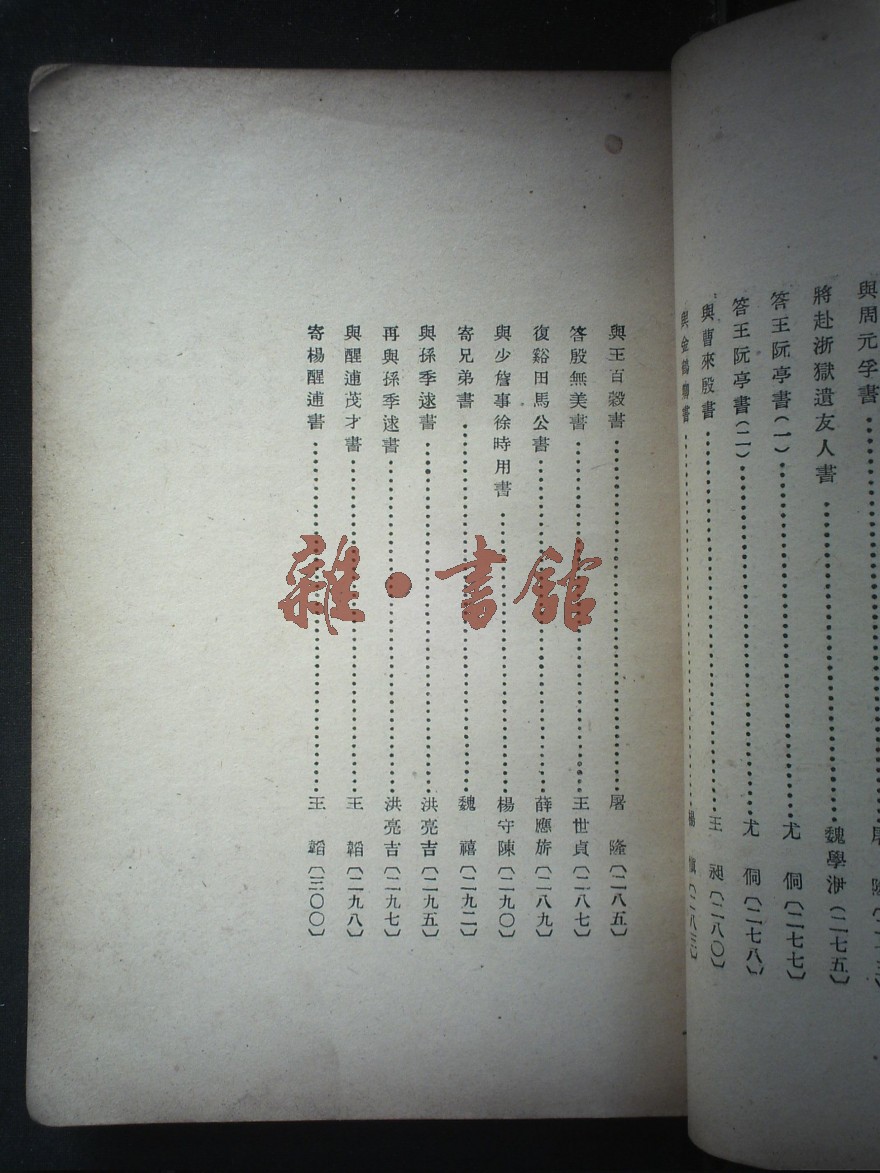 與周元孚書
將赴浙獄遺友人書 魏學洢〔二七五〕
答王阮亭書(一) 尤 侗〔二七七〕
答王阮亭書(二) 尤 侗〔二七八〕
與曹來殷書 王 昶〔二八〇〕
與王百穀書 屠 隆〔二八五〕
答殷無美書 王世貞〔二八七〕
復谿田馬公書 薛應旂〔二八九〕
與少詹事徐時用書 楊守陳〔二九〇〕
寄兄弟書 魏 禧〔二九二〕
與孫季逑書 洪亮吉〔二九五〕
再與孫季逑書 洪亮吉〔二九七〕
與醒逋茂才書 王 韜〔二九八〕
寄楊醒逋書 王 韜〔三〇〇〕
雜·書館